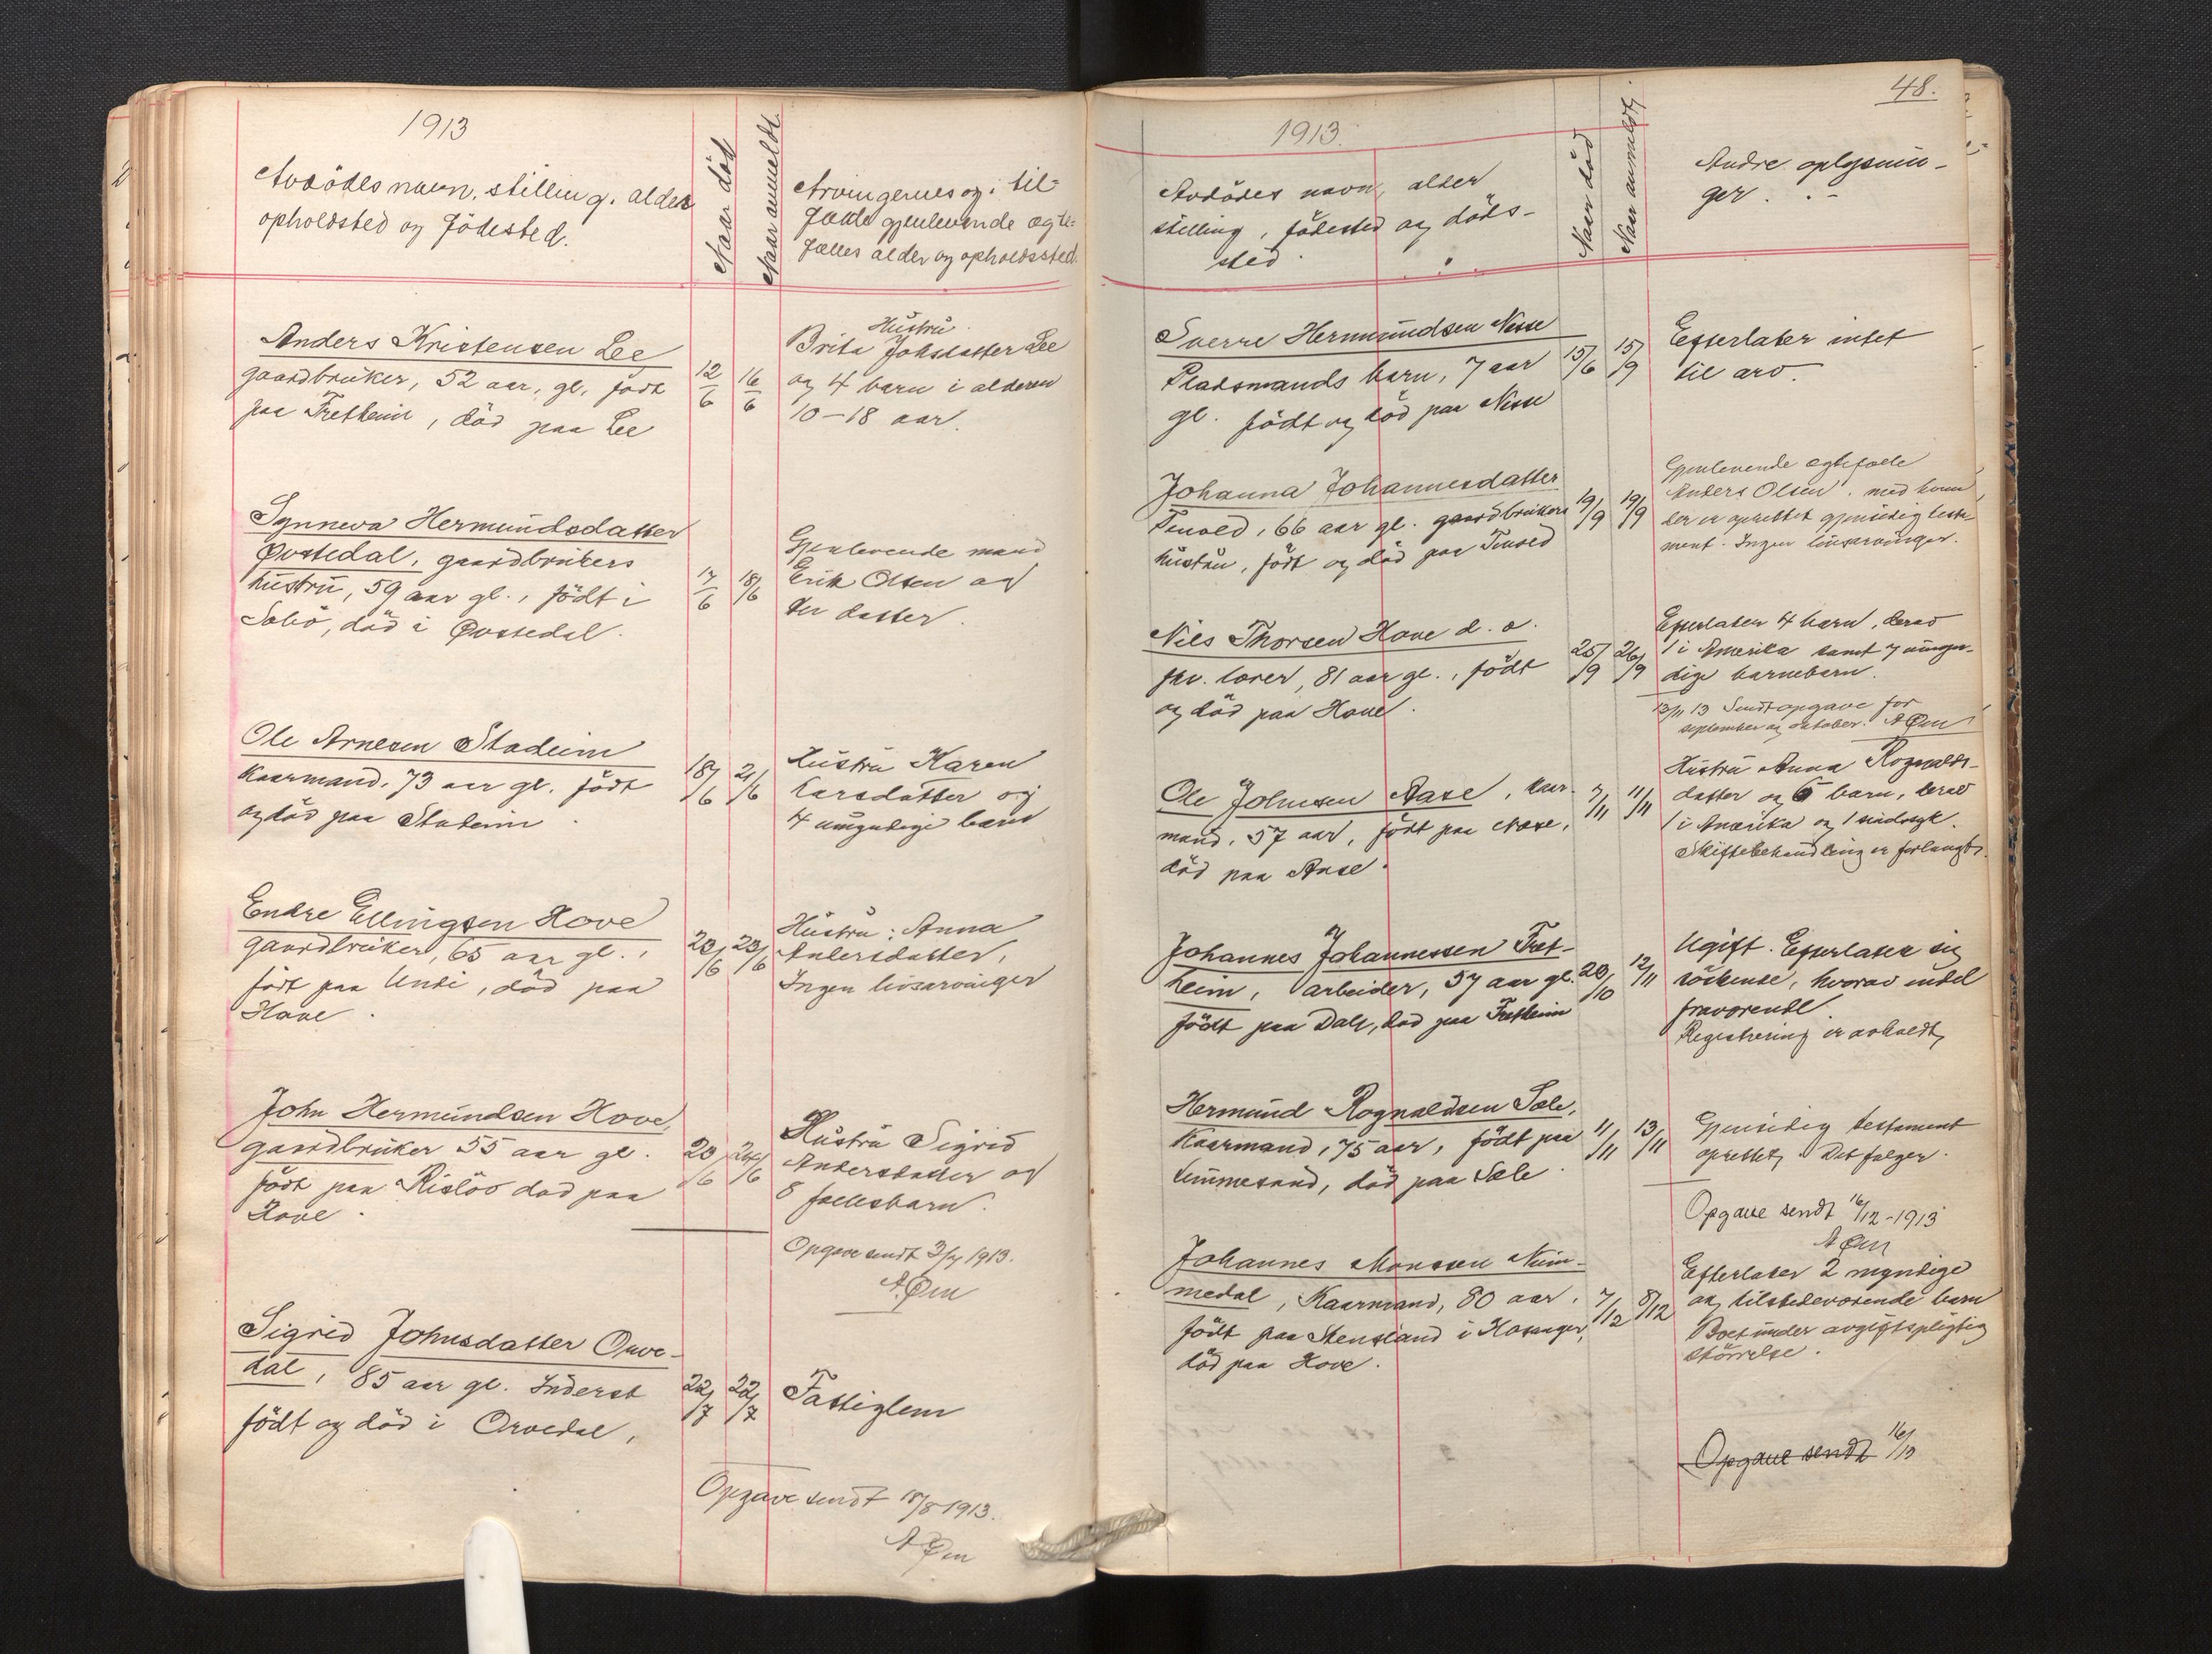 1913
Avdödes navn, stilling, alder
opholdsted og födested.
Naar död
Naar anmeldt.
Arvingernes og i til-
fælde gjenlevende ægte-
fælles alder og opholdssted.
Anders Kristensen Lee
gaardbruker, 52 aar, gl. født
paa Fretheim, död paa Lee
12/6
16/6
Hustru
Brita Johsdatter Lee
og 4 barn i alderen
10-18 aar.
Synneva Hermundsdatter
Øvstedal, gaardbrukers
hustru, 59 aar gl., födt i
död i Øvstedal.
17/6
18/6
Gjenlevende mand
Erik Olsen og
en datter.
Ole Arnesen Stadeim
Kaarmand, 73 aar gl. födt
og död paa Stadeim.
18/6
21/6
Hustru Karen
Larsdatter og
4 umyndige barn
Endre Ellingsen Hove
gaardbruker, 65 aar gl.,
födt paa Undi, död paa
Hove.
23/6
23/6
Hustru: Anna
Andersdatter,
Ingen livsarvinger
John Hermundsen Hove,
gaardbruker 55 aar gl.
födt paa Rislöv död paa
Hove.
23/6
24/6
Hustru Sigrid
Andersdatter og
8 fællesbarn.
Opgave sendt 3/7 1913.
A Øen
Sigrid Johnsdatter Orve-
dal, 85 aar gl. Inderst
födt og död i Orvedal,
22/7
22/7
Fattiglem
Opgave sendt 18/8 1913.
A Øen
48.
1913.
Avdödes navn, alder
stilling, födested og döds-
sted.
Naar död
Naar anmeldt.
Andre oplysnin-
ger.
Sverre Hermundsen Nesse
Pladsmands barn, 7 aar
gl. födt og död paa Nesse
15/6
15/9
Efterlater intet
til arv.
Johanna Johannesdatter
Tenold, 66 aar gl. gaardbrukers
hustru, födt og död paa Tenold
19/9
19/9
Gjenlevende ægtefælle
Anders Olsen, med hvem
der er oprettet gjensidig testa-
ment. Ingen livsarvinger.
Nils Thorsen Hove d. e.
fhv. lærer, 81 aar gl., födt
og död paa Hove.
25/9
26/9
Efterlater 4 barn, derav
1 i Amerika samt 7 umyn-
dige barnebarn.
13/11 13 Sendt opgave for
september og oktober. A Øen
Ole Johnsen Aase, kaar-
mand, 57 aar, födt paa Næse,
död paa Aase.
7/11
11/11
Hustru Anna Rognalds-
datter og 6 barn, derav
1 i Amerika og 1 sindssyk.
Skiftebehandling er forlangt.
Johannes Johannessen Fret-
heim, arbeider, 57 aar gl.
födt paa Dale, död paa Fretheim
20/10
12/11
Ugift. Efterlater sig
söskende, hvorav endel
fraværende.
Registrering er avholdt,
Hermund Rognaldsen Sæle,
Kaarmand, 75 aar, födt paa
Limmesand, död paa Sæle.
11/11
13/11
Gjensidig testament
oprettet. Det følger.
Opgave sendt 16/12-1913
A Øen
Johannes Monssen Num-
medal, Kaarmand, 80 aar.
födt paa Stensland i Hosanger,
död paa Hove.
7/12
8/12
Efterlater 2 myndige
og tilstedeværende barn
Boet under avgiftspligtig
störrelse.
Opgave sendt 16/12